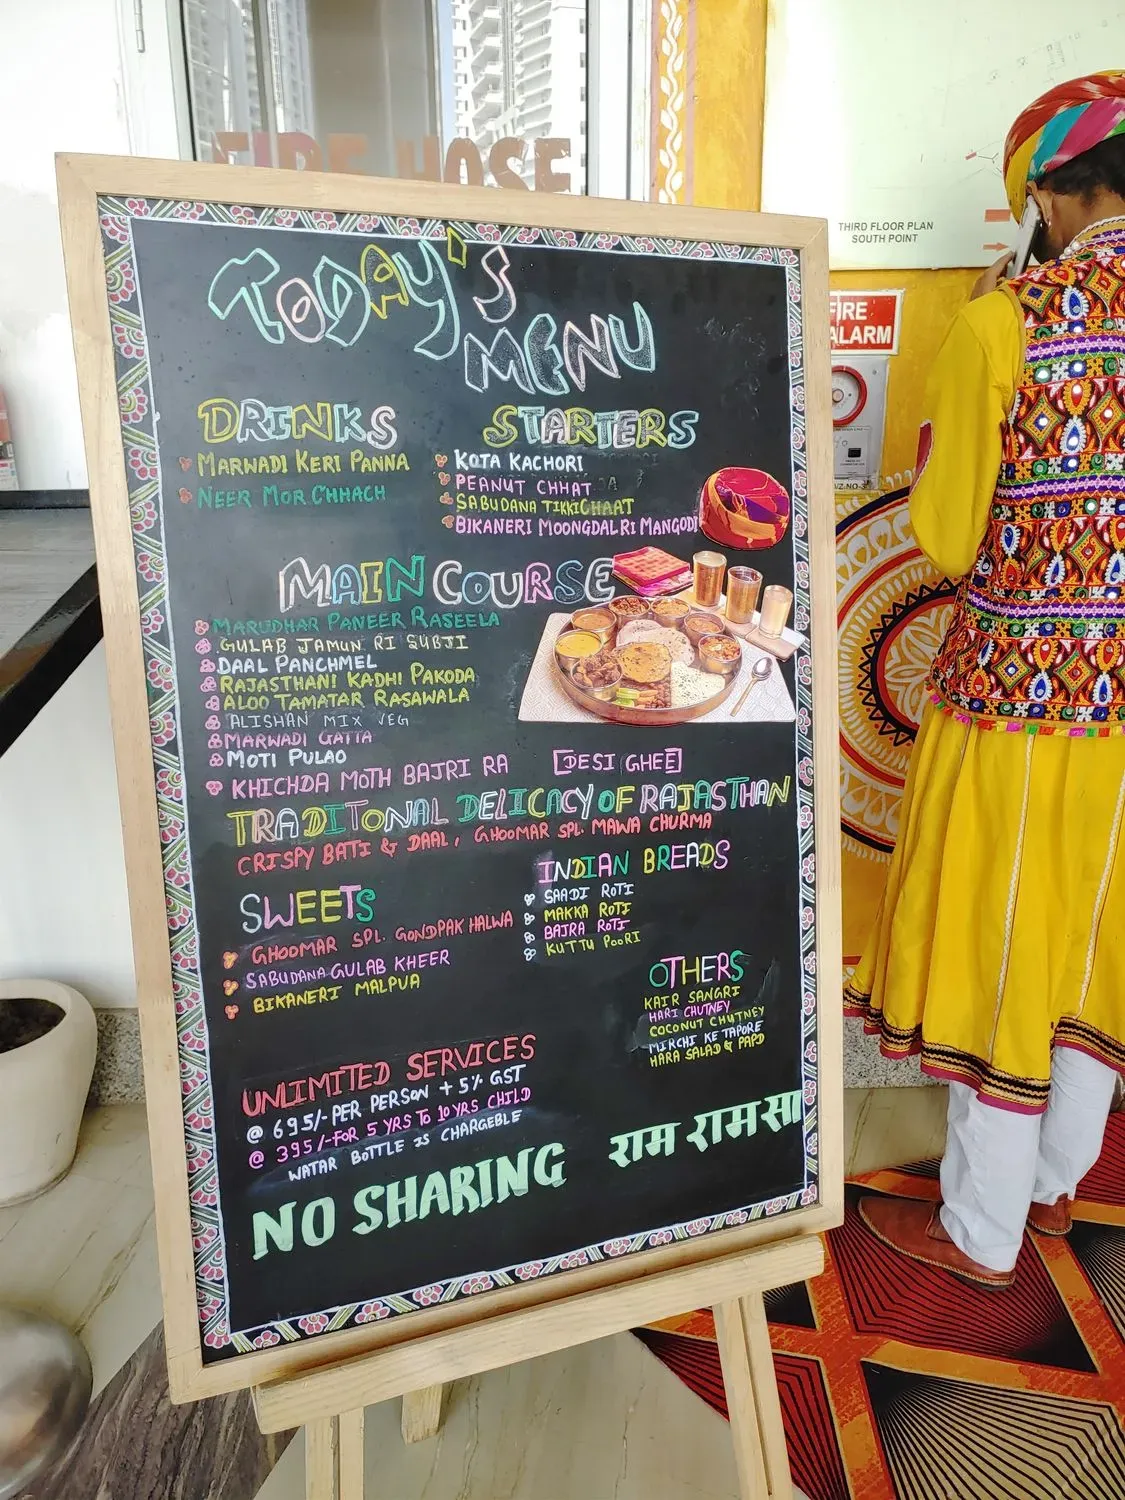 FIRE HOSE
THIRD FLOOR PLAN
SOUTH POINT
FIRE
ALARM
TODAY'S
MENU
DRINKS
MARWADI KERI PANNA
NEER MOR CHHACH
STARTERS
KOTA KACHORI
PEANUT CHHAT
SABUDANA TIKKICHAAT
BIKANERI MOONGDAL RI MANGODI
MAIN COURSE
MARUDHAR PANEER RASEELA
GULAB JAMUN RI SUBJI
DAAL PANCHMEL
RAJASTHANI KADHI PAKODA
ALOO TAMATAR RASAWALA
ALISHAN MIX VEG
MARWADI GATTA
MOTI PULAO
KHICHDA MOTH BAJRI RA [DESI GHEE]
TRADITONAL DELICACY OF RAJASTHAN
CRISPY BATI & DAAL, GHOOMAR SPL. MAWA CHURMA
SWEETS
GHOOMAR SPL. GONDPAK HALWA
SABUDANA GULAB KHEER
BIKANERI MALPUA
INDIAN BREADS
SAADI ROTI
MAKKA ROTI
BAJRA ROTI
KUTTU POORI
OTHERS
KAIR SANGRI
HARI CHUTNEY
COCONUT CHUTNEY
MIRCHI KE TAPORE
HARA SALAD & PAPD
UNLIMITED SERVICES
@ 695/- PER PERSON + 5% GST
@ 395/- FOR 5 YRS TO 10 YRS CHILD
WATAR BOTTLE IS CHARGEBLE
NO SHARING
राम राम सा